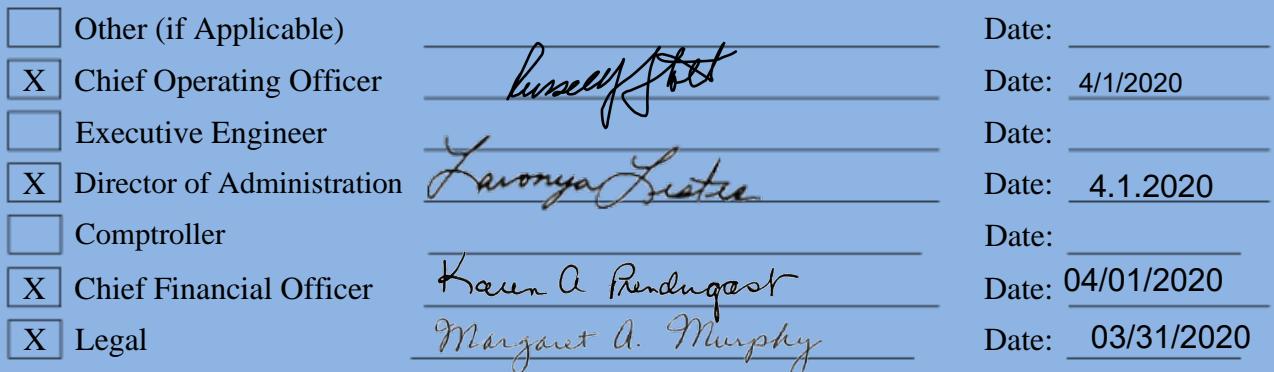 Other (if Applicable) Date:
X Chief Operating Officer Date: 4/1/2020
Executive Engineer Date:
X Director of Administration Lavonya Lester Date: 4.1.2020
Comptroller Date:
X Chief Financial Officer Karen A Prendergast Date: 04/01/2020
X Legal Margaret A. Murphy Date: 03/31/2020